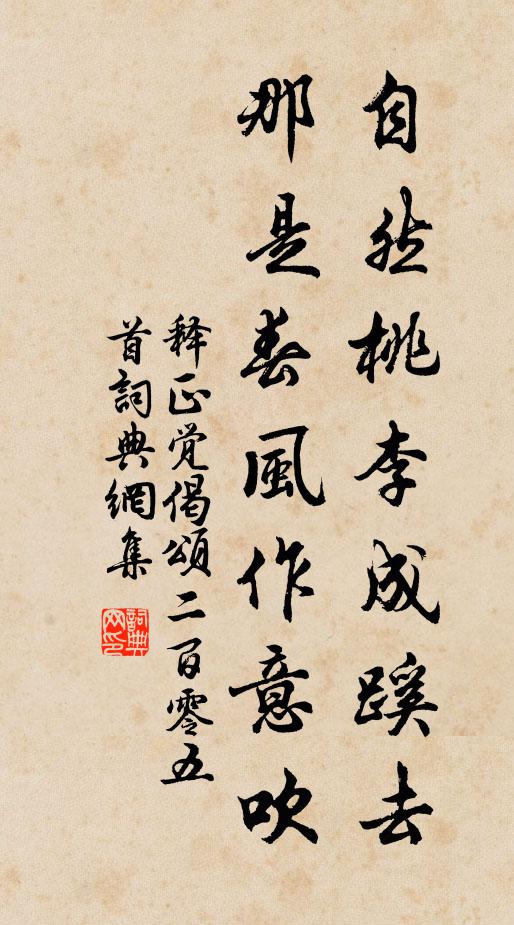 自然桃李成蹊去
那是春風作意吹
释正觉偈頌二百零五
首詞典網集
詞典
网印